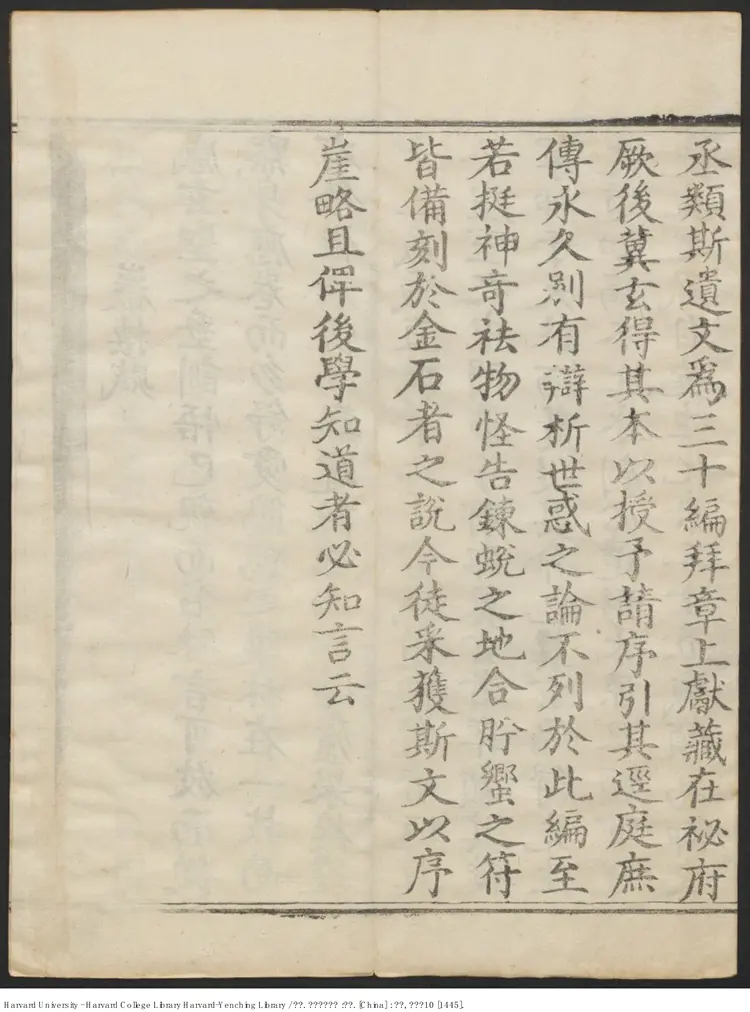 丞類斯遺文爲三十編拜章上獻藏在祕府
厥後冀玄得其本以授予請序引其逕庭庶
傳永久别有辯析世惑之論不列於此編至
若挺神奇祛物怪告鍊蛻之地合肸蠁之符
皆備刻於金石者之說今徒采獲斯文以序
崖略且俾後學知道者必知言云
Harvard University - Harvard College Library Harvard-Yenching Library / ??. ?????? : ??. [China] : ??, ???10 [1445].